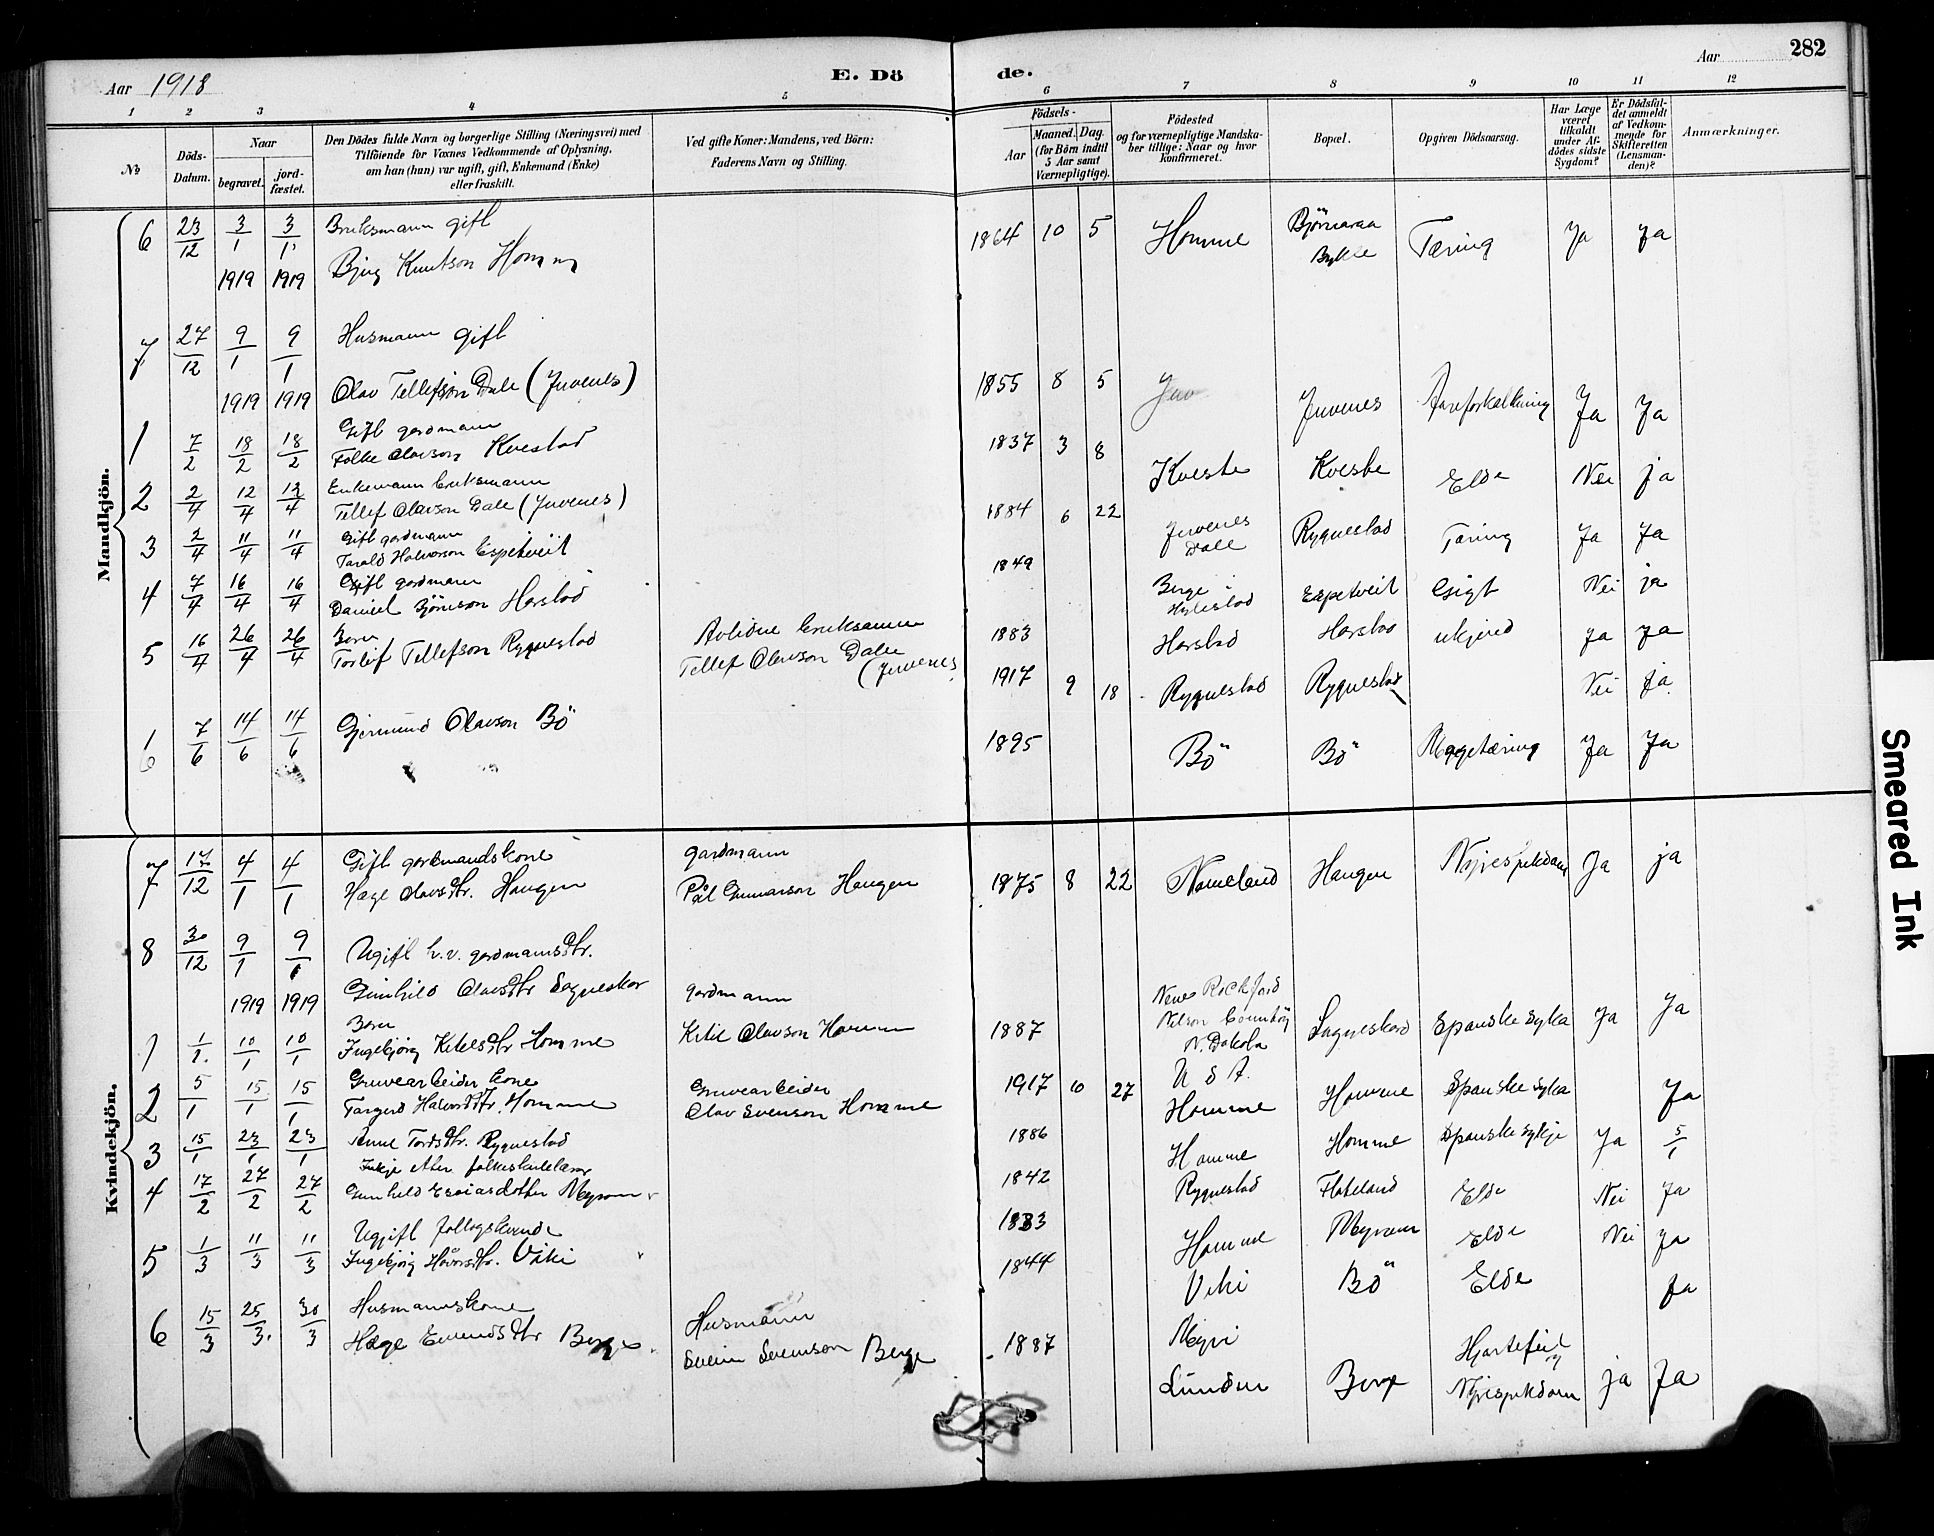 Aar 1918
E. Dö
de.
Aar
282
1 2 3 4 5 6 7 8 9 10 11 12
№
Döds-Datum.
Naar
begravet.
jord-fæstet.
Den Dödes fulde Navn og borgerlige Stilling (Næringsvei) med
Tilföiende for Voxnes Vedkommende af Oplysning,
om han (hun) var ugift, gift, Enkemand (Enke)
eller fraskilt.
Ved gifte Koner: Mandens, ved Börn:
Faderens Navn og Stilling.
Födsels-
Aar
Maaned. Dag.
(for Börn indtil
5 Aar samt
Værnepligtige).
Födested
og for værnepligtige Mandska-
ber tillige: Naar og hvor
konfirmeret.
Bopæl.
Opgiven Dödsaarsag.
Har Læge
været
tilkaldt
under Af-
dödes sidste
Sygdom?
Er Dödsfal-
det anmeldt
af Vedkom-
mende for
Skifteretten
(Lensman-
den)?
Anmærkninger.
Mandkjön.
6 23/12 3/1 3/1 Bruksmann gift 1864 10 5 Homme Bjørnaraa Tæring Ja Ja
1919 1919 Knutson Bykle
7 27/12 9/1 9/1 Husmann gift
1919 1919 Olav Tellefson Dale (Juvenes) 1855 8 5 Juv Juvenes Aareforkalkning Ja Ja
1 7/2 18/2 18/2 Gift gardmann
Folke Olavson Kvestad 1837 3 8 Kveste Kveste Elde Nei ja
2 2/4 12/4 12/4 Enkemann bruksmann
Tellef Olavson Dale (Juvenes) 1884 6 22 Juvenes Dale Rygnestad Tæring Ja Ja
3 2/4 11/4 11/4 Gift gardmann
Tarald Halvorson Espetveit 1849 Berge Hylestad Espetveit Gigt Nei ja
4 7/4 16/4 16/4 Gift gardmann
Daniel Björnson Harstad 1883 Harstad Harstad ukjend ja ja
5 16/4 26/4 26/4 Born Avlidne bruksmann
Torleif Tellefson Rygnestad Tellef Olavson Dale (Juvenes) 1917 9 18 Rygnestad Rygnestad Nei ja
6 7/6 14/6 14/6 Gjermund Olavson Bö 1895 Bö Bö Ryggetæring Ja Ja
Kvindekjön.
7 17/12 4/1 4/1 Gift gardmandskone gardmann
Hæge Olavsdtr. Haugen Pål Gunnarson Haugen 1875 8 22 Nomeland Haugen Nyresjukdom Ja ja
8 30/12 9/1 9/1 Ugift h.v. gardmannsdtr.
1919 1919 Gunhild Olavsdtr gardmann 1887 Rockford Nelson N. Dakota U S A. Spanske syka ja Ja
1 1/1 10/1 10/1 Born
Ingebjörg Ketelsdtr Homme Ketil Olavson Homme 1917 10 27 Homme Homme Spanske syka Ja
2 5/1 15/1 15/1 Gruvearbeider kone Gruvearbeider
Targerd Halvorsdtr. Homme Olav Svenson Homme 1886 Homme Homme Spanske sykje Ja 5/1
3 15/1 23/1 23/1 Anne Tordsdtr. Rygnestad 1842 Rygnestad Flateland Elde Nei Ja
4 17/2 27/2 27/2 Enkje etter folkeskulelærar
Gunhild Esaiasdotter Myrom 1833 Homme Myrom Elde Nei Ja
5 1/3 11/3 11/3 Ugift fattigkvende
Ingebjörg Håvorsdtr. Viki 1844 Viki Bö Elde Ja
6 15/3 25/3. 30/3 Husmannskone Husmann
Hæge Eivindsdtr Berge Svein Svenson Berge 1887 Myri Lunden Berge Hjartefeil og Nyresjukdom ja Ja
Smeared Ink